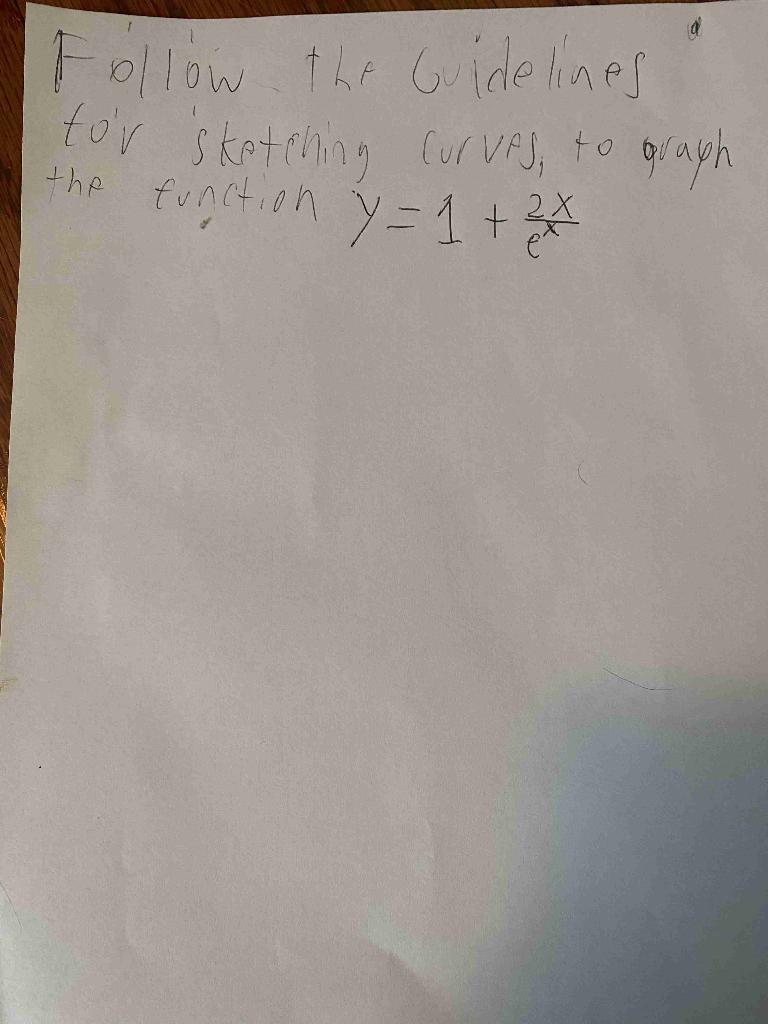 Follow the Guidelines
for sketching curves, to graph
the function y = 1 + 2x/e^x